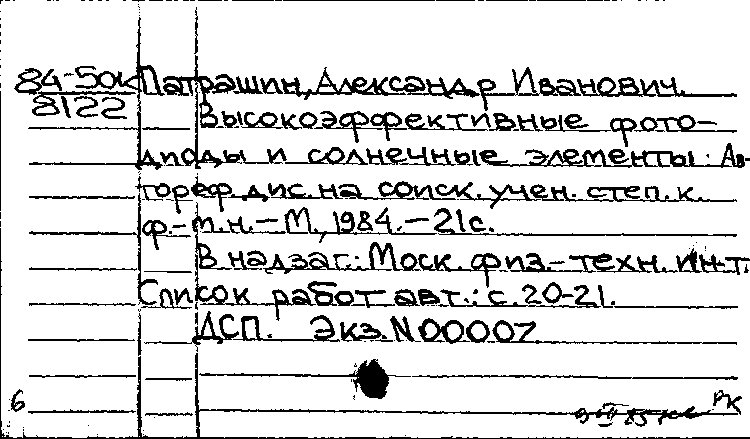 84-50к Патрашин, Александр Иванович.
8122 Высокоэффективные фото-
диоды и солнечные элементы: Ав-
тореф. дис. на соиск. учен. степ. к.
ф.-т.н. - М., 1984. - 21с.
В надзаг.: Моск. физ.-техн. ин-т.
Список работ авт.: с. 20-21.
ДСП. Экз. N 00007
6
РК